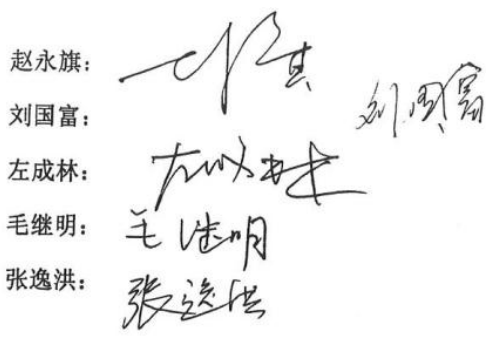 赵永旗：
刘国富： 刘国富
左成林：
毛继明： 毛继明
张逸洪： 张逸洪